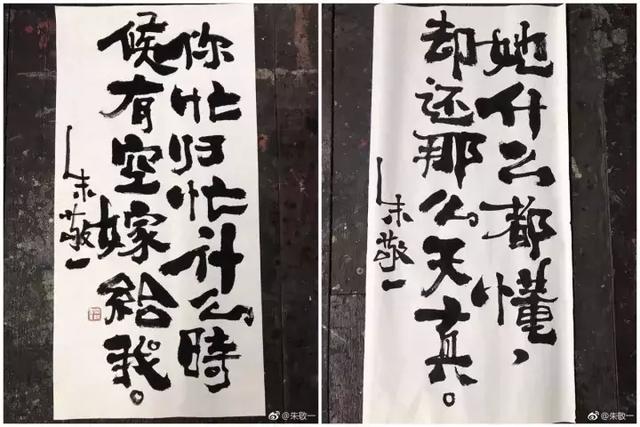 你忙归忙什么時
候有空嫁给我。
朱敬一
@朱敬一
她什么都懂，
却还那么天真。
朱敬一
@朱敬一